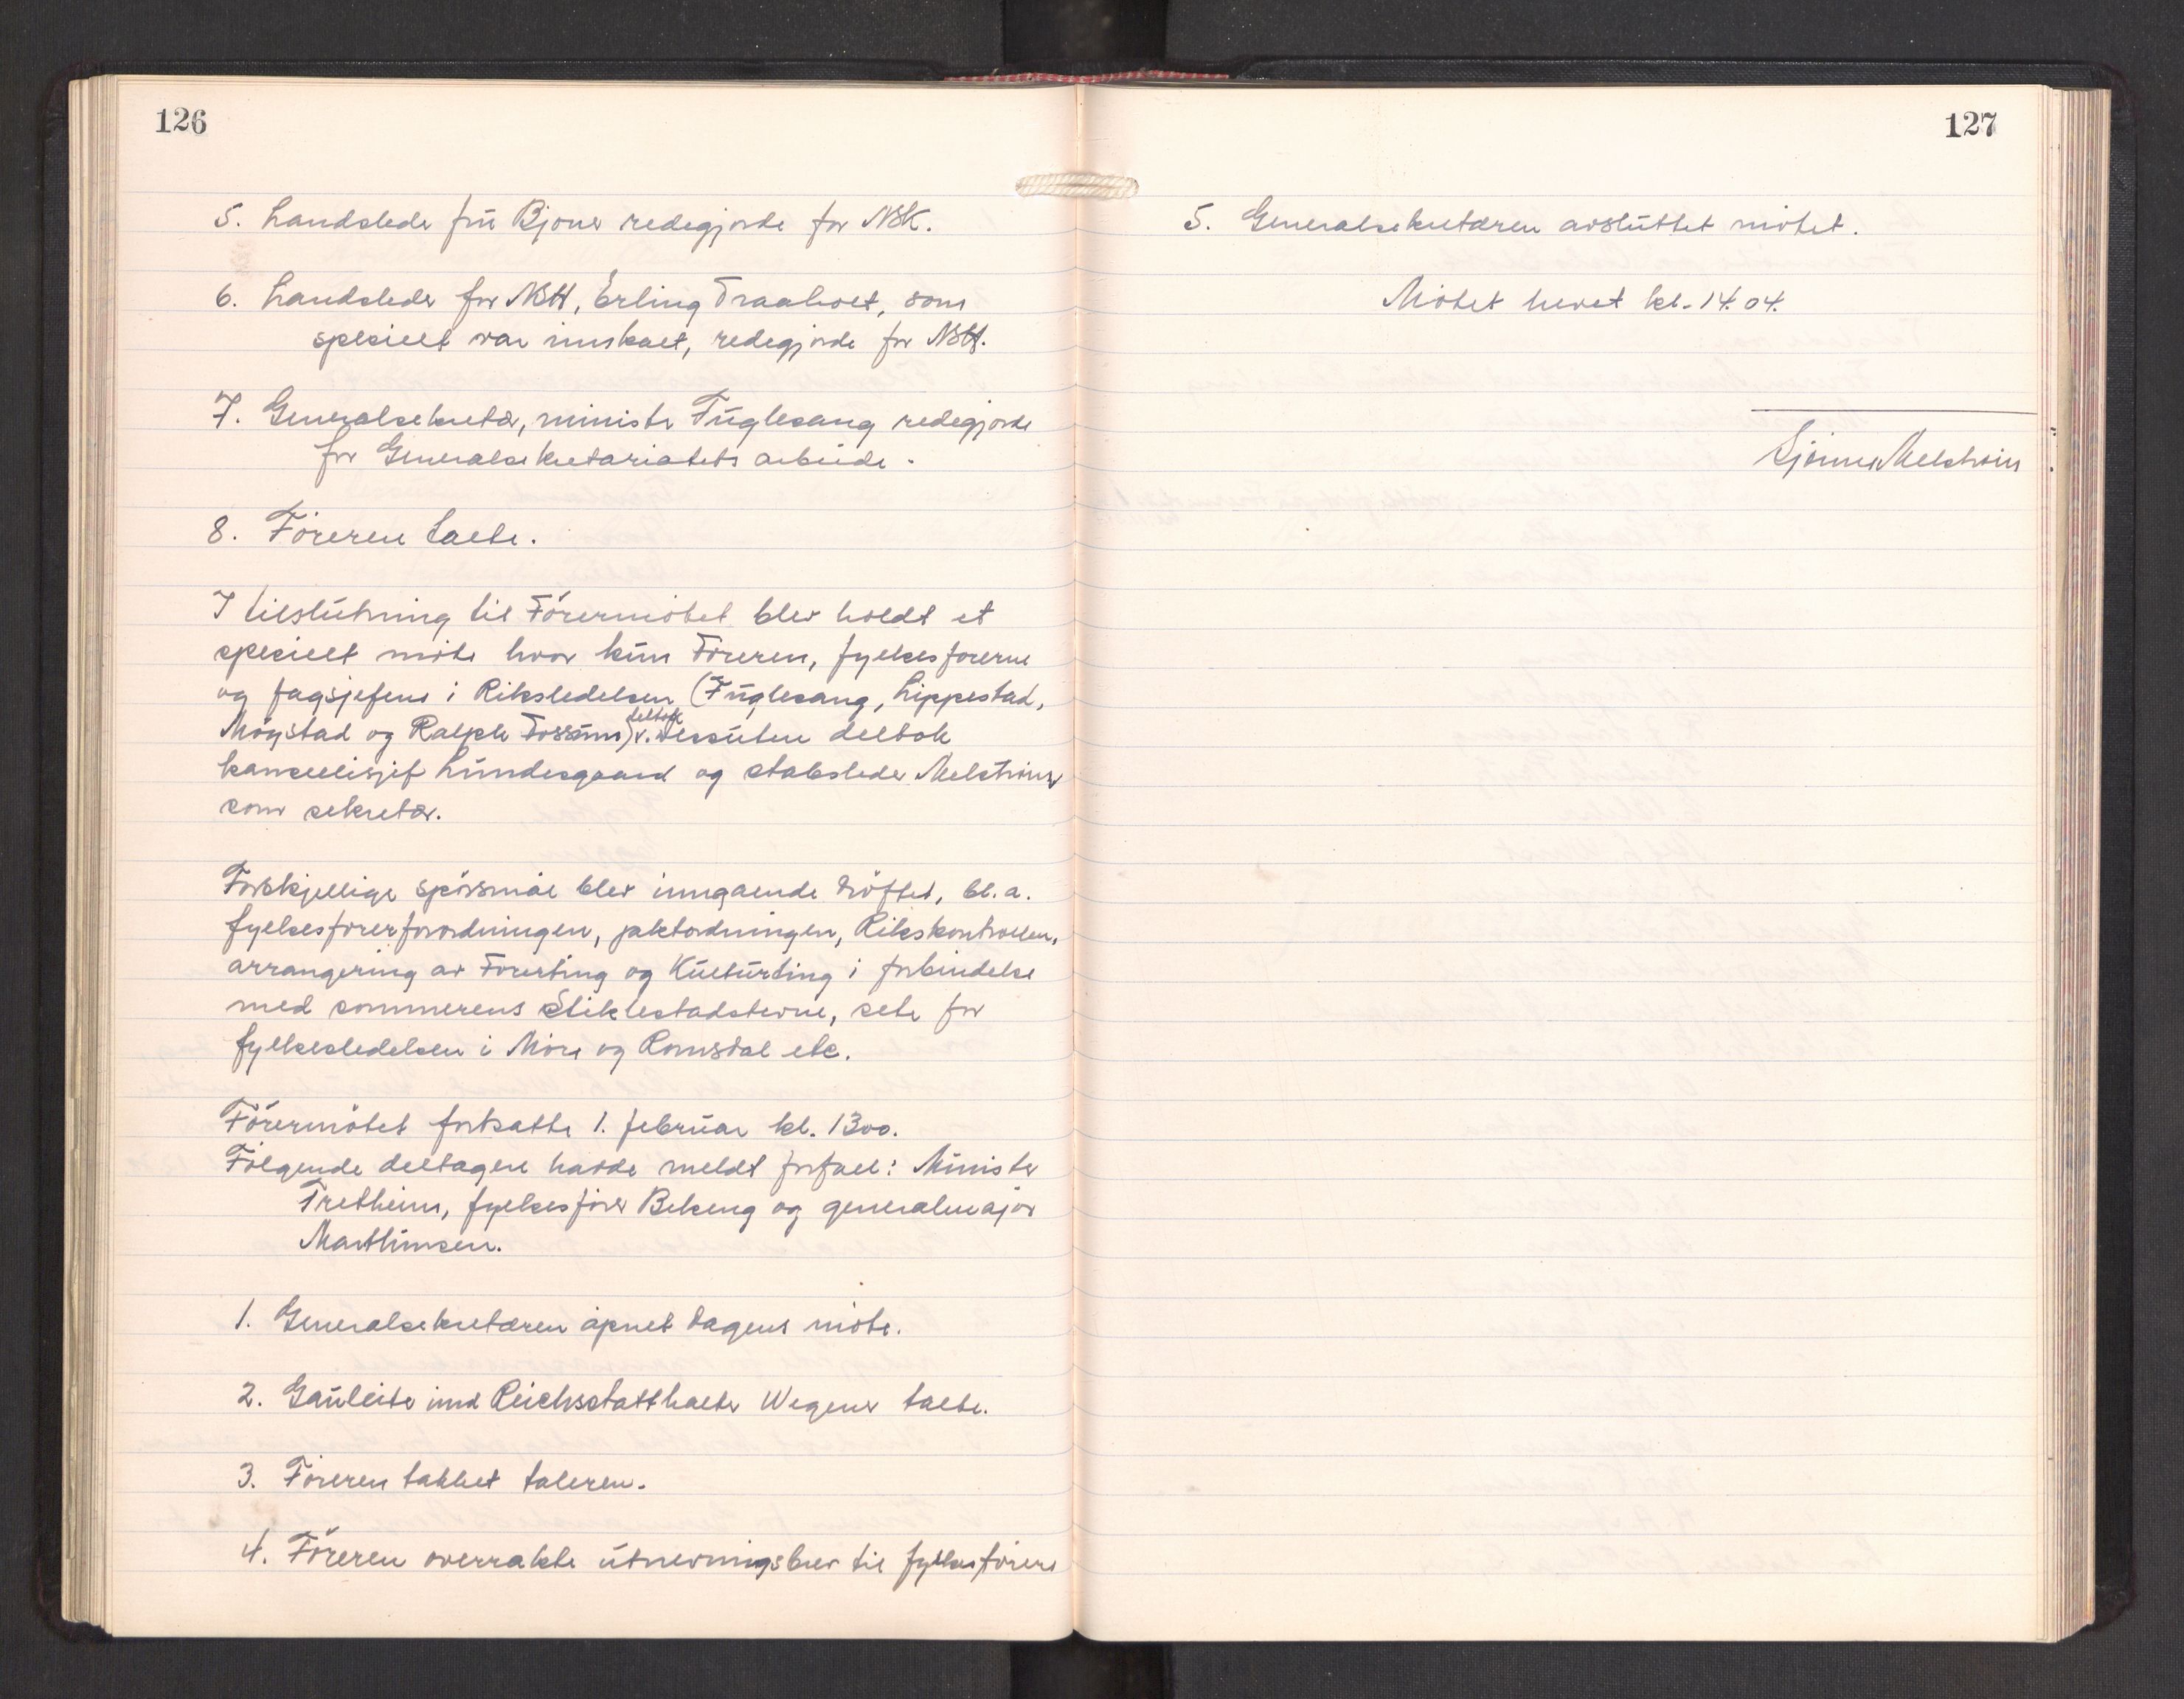 126
5. Landsleder fru Bjoner redegjorde for NSK.
6. Landsleder for NSH, Erling Traaholt, som
spesielt var innkalt, redegjorde for NSH.
7. Generalsekretær, minister Fuglesang redegjorde
for Generalsekretariatets arbeide.
8. Föreren talte.
I tilslutning til Förermötet blev holdt et
spesielt möte hvor kun Föreren, fylkesförerne
og fagsjefene i Riksledelsen (Fuglesang, Lippestad,
Möystad og Ralph Fossum) deltok. Dessuten deltok
kansellisjef Lundesgaard og stabsleder Melstrøm
som sekretær.
Forskjellige spörsmål blev inngående dröftet, bl.a.
fylkesförerforordningen, jaktordningen, Rikskontrollen,
arrangering av Förerting og Kulturting i forbindelse
med sommerens Stiklestadstevne, sete for
fylkesledelsen i Möre og Romsdal etc.
Förermötet fortsatte 1. februar kl. 1300.
Fölgende deltagere hadde meldt forfall: Minister
Fretheim, fylkesförer Bekeng og generalmajor
Marthinsen.
1. Generalsekretæren åpnet dagens möte.
2. Gauleiter und Reichsstatthalter Wegener talte.
3. Föreren takket taleren.
4. Föreren overrakte utnevningsbrev til fylkesförere
127
5. Generalsekretæren avsluttet mötet.
Mötet hevet kl. 14.04.
Melstrøm